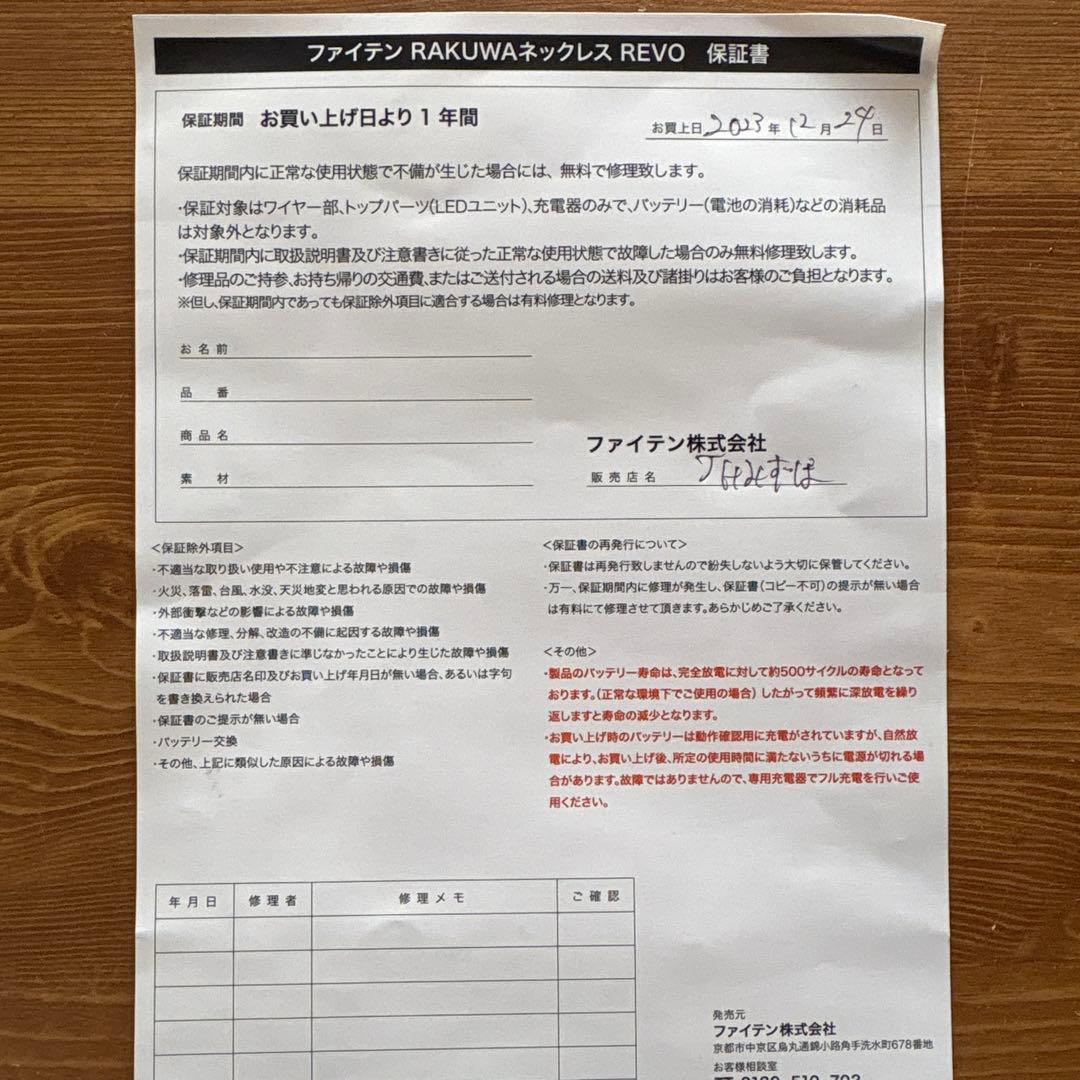 ファイテン RAKUWAネックレス REVO 保証書
保証期間 お買い上げ日より 1 年間
お買上日 2023 年 12 月 24 日
保証期間内に正常な使用状態で不備が生じた場合には、無料で修理致します。
・保証対象はワイヤー部、トップパーツ(LEDユニット)、充電器のみで、バッテリー(電池の消耗)などの消耗品
は対象外となります。
・保証期間内に取扱説明書及び注意書きに従った正常な使用状態で故障した場合のみ無料修理致します。
・修理品のご持参、お持ち帰りの交通費、またはご送付される場合の送料及び諸掛りはお客様のご負担となります。
※但し、保証期間内であっても保証除外項目に適合する場合は有料修理となります。
お名前
品番
商品名
素材
ファイテン株式会社
販売店名
<保証除外項目>
・不適当な取り扱い使用や不注意による故障や損傷
・火災、落雷、台風、水没、天災地変と思われる原因での故障や損傷
・外部衝撃などの影響による故障や損傷
・不適当な修理、分解、改造の不備に起因する故障や損傷
・取扱説明書及び注意書きに準じなかったことにより生じた故障や損傷
・保証書に販売店名印及びお買い上げ年月日が無い場合、あるいは字句
を書き換えられた場合
・保証書のご提示が無い場合
・バッテリー交換
・その他、上記に類似した原因による故障や損傷
<保証書の再発行について>
・保証書は再発行致しませんので紛失しないよう大切に保管してください。
・万一、保証期間内に修理が発生し、保証書(コピー不可)の提示が無い場合
は有料にて修理させて頂きます。あらかじめご了承ください。
<その他>
・製品のバッテリー寿命は、完全放電に対して約500サイクルの寿命となって
おります。(正常な環境下でご使用の場合) したがって頻繁に深放電を繰り
返しますと寿命の減少となります。
・お買い上げ時のバッテリーは動作確認用に充電がされていますが、自然放
電により、お買い上げ後、所定の使用時間に満たないうちに電源が切れる場
合があります。故障ではありませんので、専用充電器でフル充電を行いご使
用ください。
年月日 修理者 修理メモ ご確認
発売元
ファイテン株式会社
京都市中京区烏丸通錦小路角手洗水町678番地
お客様相談室